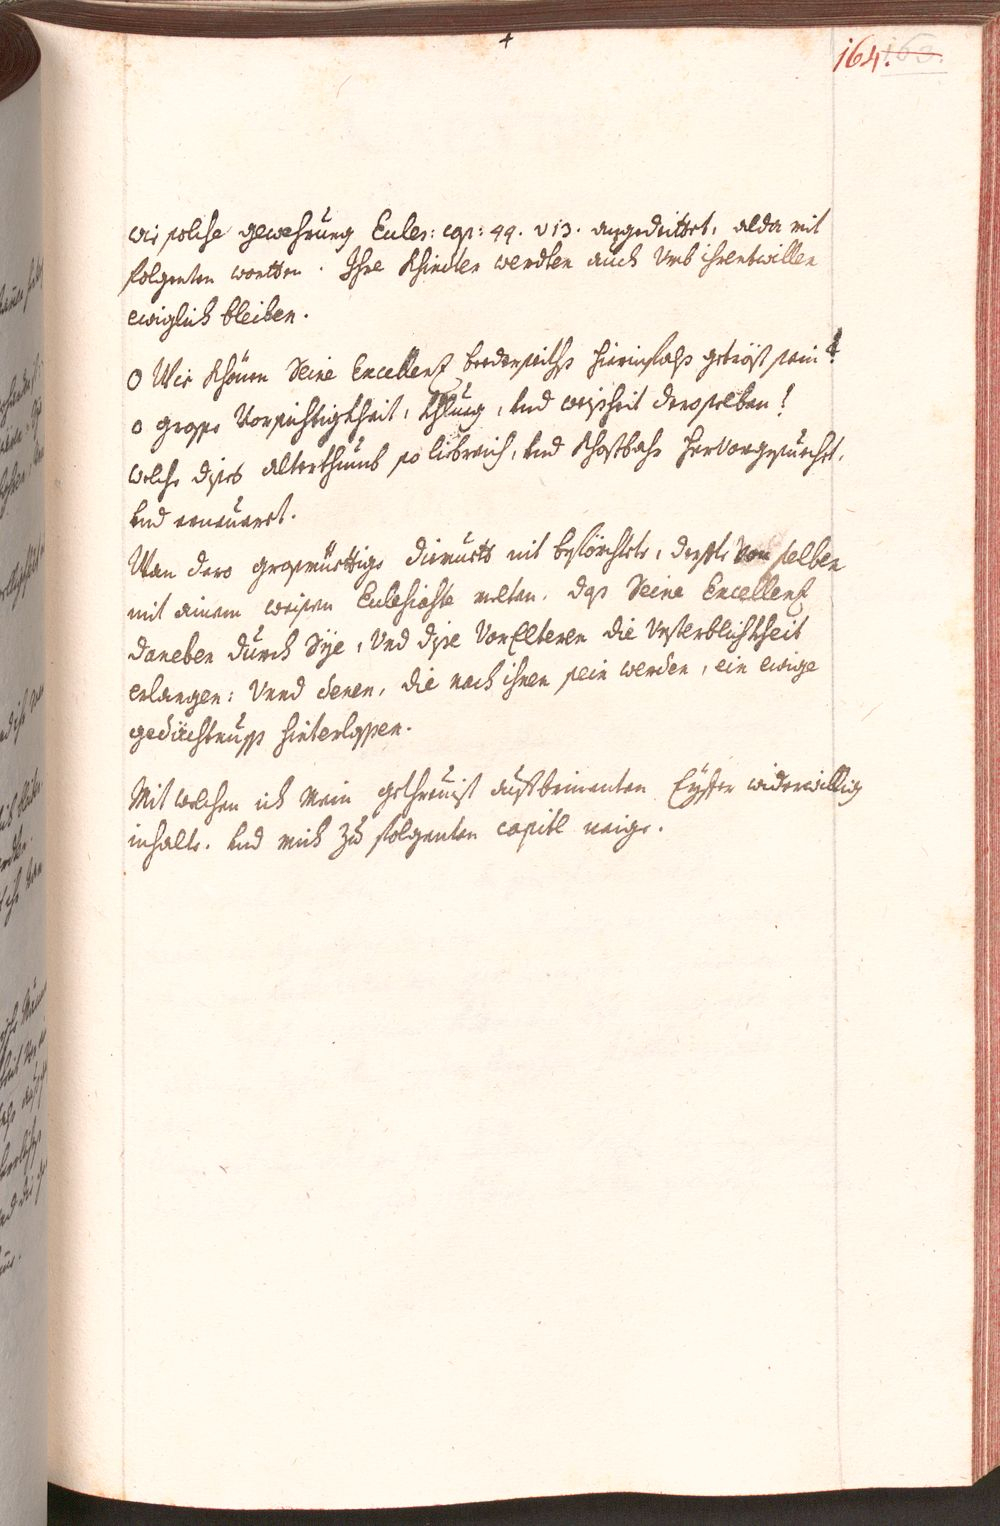 164. 163.
wie solche gewehrung Eccles: cap: 44. v 13. angedeüttet, alda mit
folgenten wortten. Ihre Khinder werdten auch Umb ihrentwillen
ewiglich bleiben.
O Wie Khönen Seine Excellenz beederseiths hierinfahls getröst sein!
O grosse Vorsichtigkheit, Khlueg, und weisheit derselben!
welche dises alterthumb so liebreich, und Khostbahr hervorgesuechet,
und erneüeret.
Wan dero grosmüettige diemueth nit beförchtete, derfte Von selben
mit ainem weisen Eclesiaste melten. das Seine Excellenz
daneben durch Sye, Und dise VorElteren die Unsterblichkheit
erlangen: Unnd denen, die nach ihnen sein werden, ein ewige
gedächtnuss hinterlassen.
Mit welchen ich mein getreüist widerwillig
inhalte. und mich zu folgenten capitl neige.